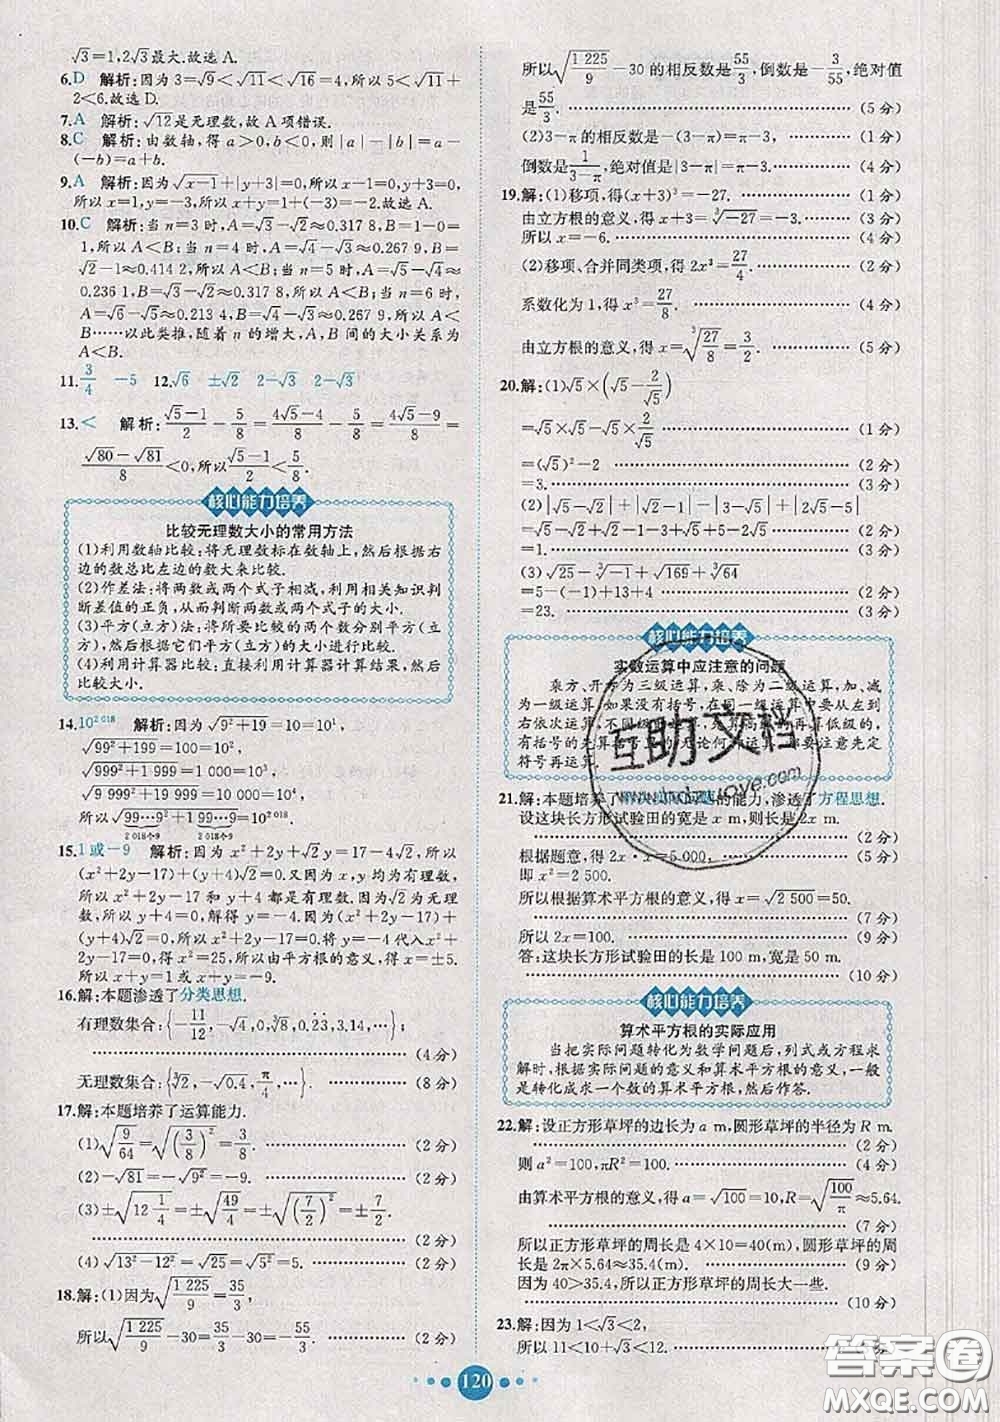 √3=1,2√3最大.故选A.
6.D 解析:因为3=√9<√11<√16=4,所以5<√11+
2<6.故选D.
7.A 解析:√12是无理数,故A项错误.
8.C 解析:由数轴,得a>0,b<0,则|a|-|b|=a-
(-b)=a+b.
9.A 解析:因为√x-1+|y+3|=0,所以x-1=0,y+3=0.
所以x=1,y=-3,所以x+y=1+(-3)=-2.故选A.
10.C 解析:当n=3时,A=√3-√2≈0.317 8,B=1-0=
1,所以A<B;当n=4时,A=√4-√3≈0.267 9,B=
√2-1≈0.414 2,所以A<B;当n=5时,A=√5-√4≈
0.236 1,B=√3-√2≈0.317 8,所以A<B;当n=6时,
A=√6-√5≈0.213 4,B=√4-√3≈0.267 9,所以A<
B……以此类推,随着n的增大,A,B间的大小关系为
A<B.
11.3/4 -5 12.√6 ±√2 2-√3 2-√3
13.< 解析:(√5-1)/2-5/8=(4√5-4)/8-5/8=(4√5-9)/8=
(√80-√81)/8<0,所以(√5-1)/2<5/8.
核心能力培养
比较无理数大小的常用方法
(1)利用数轴比较:将无理数标在数轴上,然后根据右
边的数总比左边的数大来比较.
(2)作差法:将两数或两个式子相减,利用相关知识判
断差值的正负,从而判断两数或两个式子的大小.
(3)平方(立方)法:将所要比较的两个数分别平方(立
方),使它们平方(立方)后的大小进行比较.
(4)利用计算器比较:直接利用计算器计算结果,然后
比较大小.
14.10^2 018 解析:因为√9²+19=10=10¹,
√99²+199=100=10²,
√999²+1 999=1 000=10³,
√9 999²+19 999=10 000=10⁴,
所以√99…9²+199…9=10^2 018.
2 018个9 2 018个9
15.1或-9 解析:因为x²+2y+√2y=17-4√2,所以
(x²+2y-17)+(y+4)√2=0.又因为x,y均为有理数,
所以x²+2y-17和y+4都是有理数.因为√2为无理
数,所以y+4=0,解得y=-4.所以(x²+2y-17)+
(y+4)√2=x²+2y-17=0,将y=-4代入x²+2y-
17=0,得x²=25,所以由平方根的意义,得x=±5.
所以x+y=1或x+y=-9.
16.解:本题渗透了分类思想.
有理数集合:{-11/12,-√4,0,³√8,0.2̇3̇,3.14,…};
(4分)
无理数集合:{³√2,-√0.4,π/4,…}. (8分)
17.解:本题培养了运算能力.
(1)√(9/64)=√((3/8)²)=3/8. (2分)
(2)-√81=-√9²=-9. (2分)
(3)±√(12 1/4)=±√(49/4)=±√((7/2)²)=±7/2.
(2分)
(4)√13²-12²=√25=√5²=5. (2分)
18.解:(1)因为√(1 225/9)=35/3,
所以√(1 225/9)-30=35/3-30=-55/3. (2分)
所以√(1 225/9)-30的相反数是55/3,倒数是-3/55,绝对值
是55/3. (5分)
(2)3-π的相反数是-(3-π)=π-3, (1分)
倒数是1/(3-π),绝对值是|3-π|=π-3. (4分)
19.解:(1)移项,得(x+3)³=-27. (1分)
由立方根的意义,得x+3=³√-27=-3. (3分)
所以x=-6. (4分)
(2)移项、合并同类项,得2x³=27/4. (2分)
系数化为1,得x³=27/8. (4分)
由立方根的意义,得x=³√(27/8)=3/2. (5分)
20.解:(1)√5×(√5-2/√5)
=√5×√5-√5×2/√5 (1分)
=(√5)²-2 (2分)
=3. (3分)
(2)|√5-√2|+|√5-1|-|2√5-5|
=√5-√2+√5-1+√2+5-2√5 (2分)
=1. (3分)
(3)√25-³√-1+√169+³√64
=5-(-1)+13+4 (2分)
=23. (3分)
核心能力培养
实数运算中应注意的问题
乘方、开方为三级运算,乘、除为二级运算,加、减
为一级运算.如果没有括号,在同一级运算中要从左到
右依次运算,不同级运算,先算高级的再算低级的,
有括号的先算括号里的.无论何种运算都要注意先定
符号再运算.
21.解:本题培养了的能力,渗透了方程思想.
设这块长方形试验田的宽是x m,则长是2x m.
(2分)
根据题意,得2x·x=5 000, (5分)
即x²=2 500.
所以根据算术平方根的意义,得x=√2 500=50.
(7分)
所以2x=100. (9分)
答:这块长方形试验田的长是100 m,宽是50 m.
(10分)
核心能力培养
算术平方根的实际应用
当把实际问题转化为数学问题后,列式或方程求
解时,根据实际问题的意义和算术平方根的意义,一般
是转化成求一个数的算术平方根,然后作答.
22.解:设正方形草坪的边长为a m,圆形草坪的半径为R m.
则a²=100,πR²=100. (4分)
由算术平方根的意义,得a=√100=10,R=√(100/π)≈5.64.
(7分)
所以正方形草坪的周长是4×10=40(m),圆形草坪的周
长是2π×5.64≈35.4(m). (9分)
因为40>35.4,所以正方形草坪的周长大一些.
(10分)
23.解:因为1<√3<2,
所以11<10+√3<12. (2分)
120
互助文档
答案圈
MXQE.COM